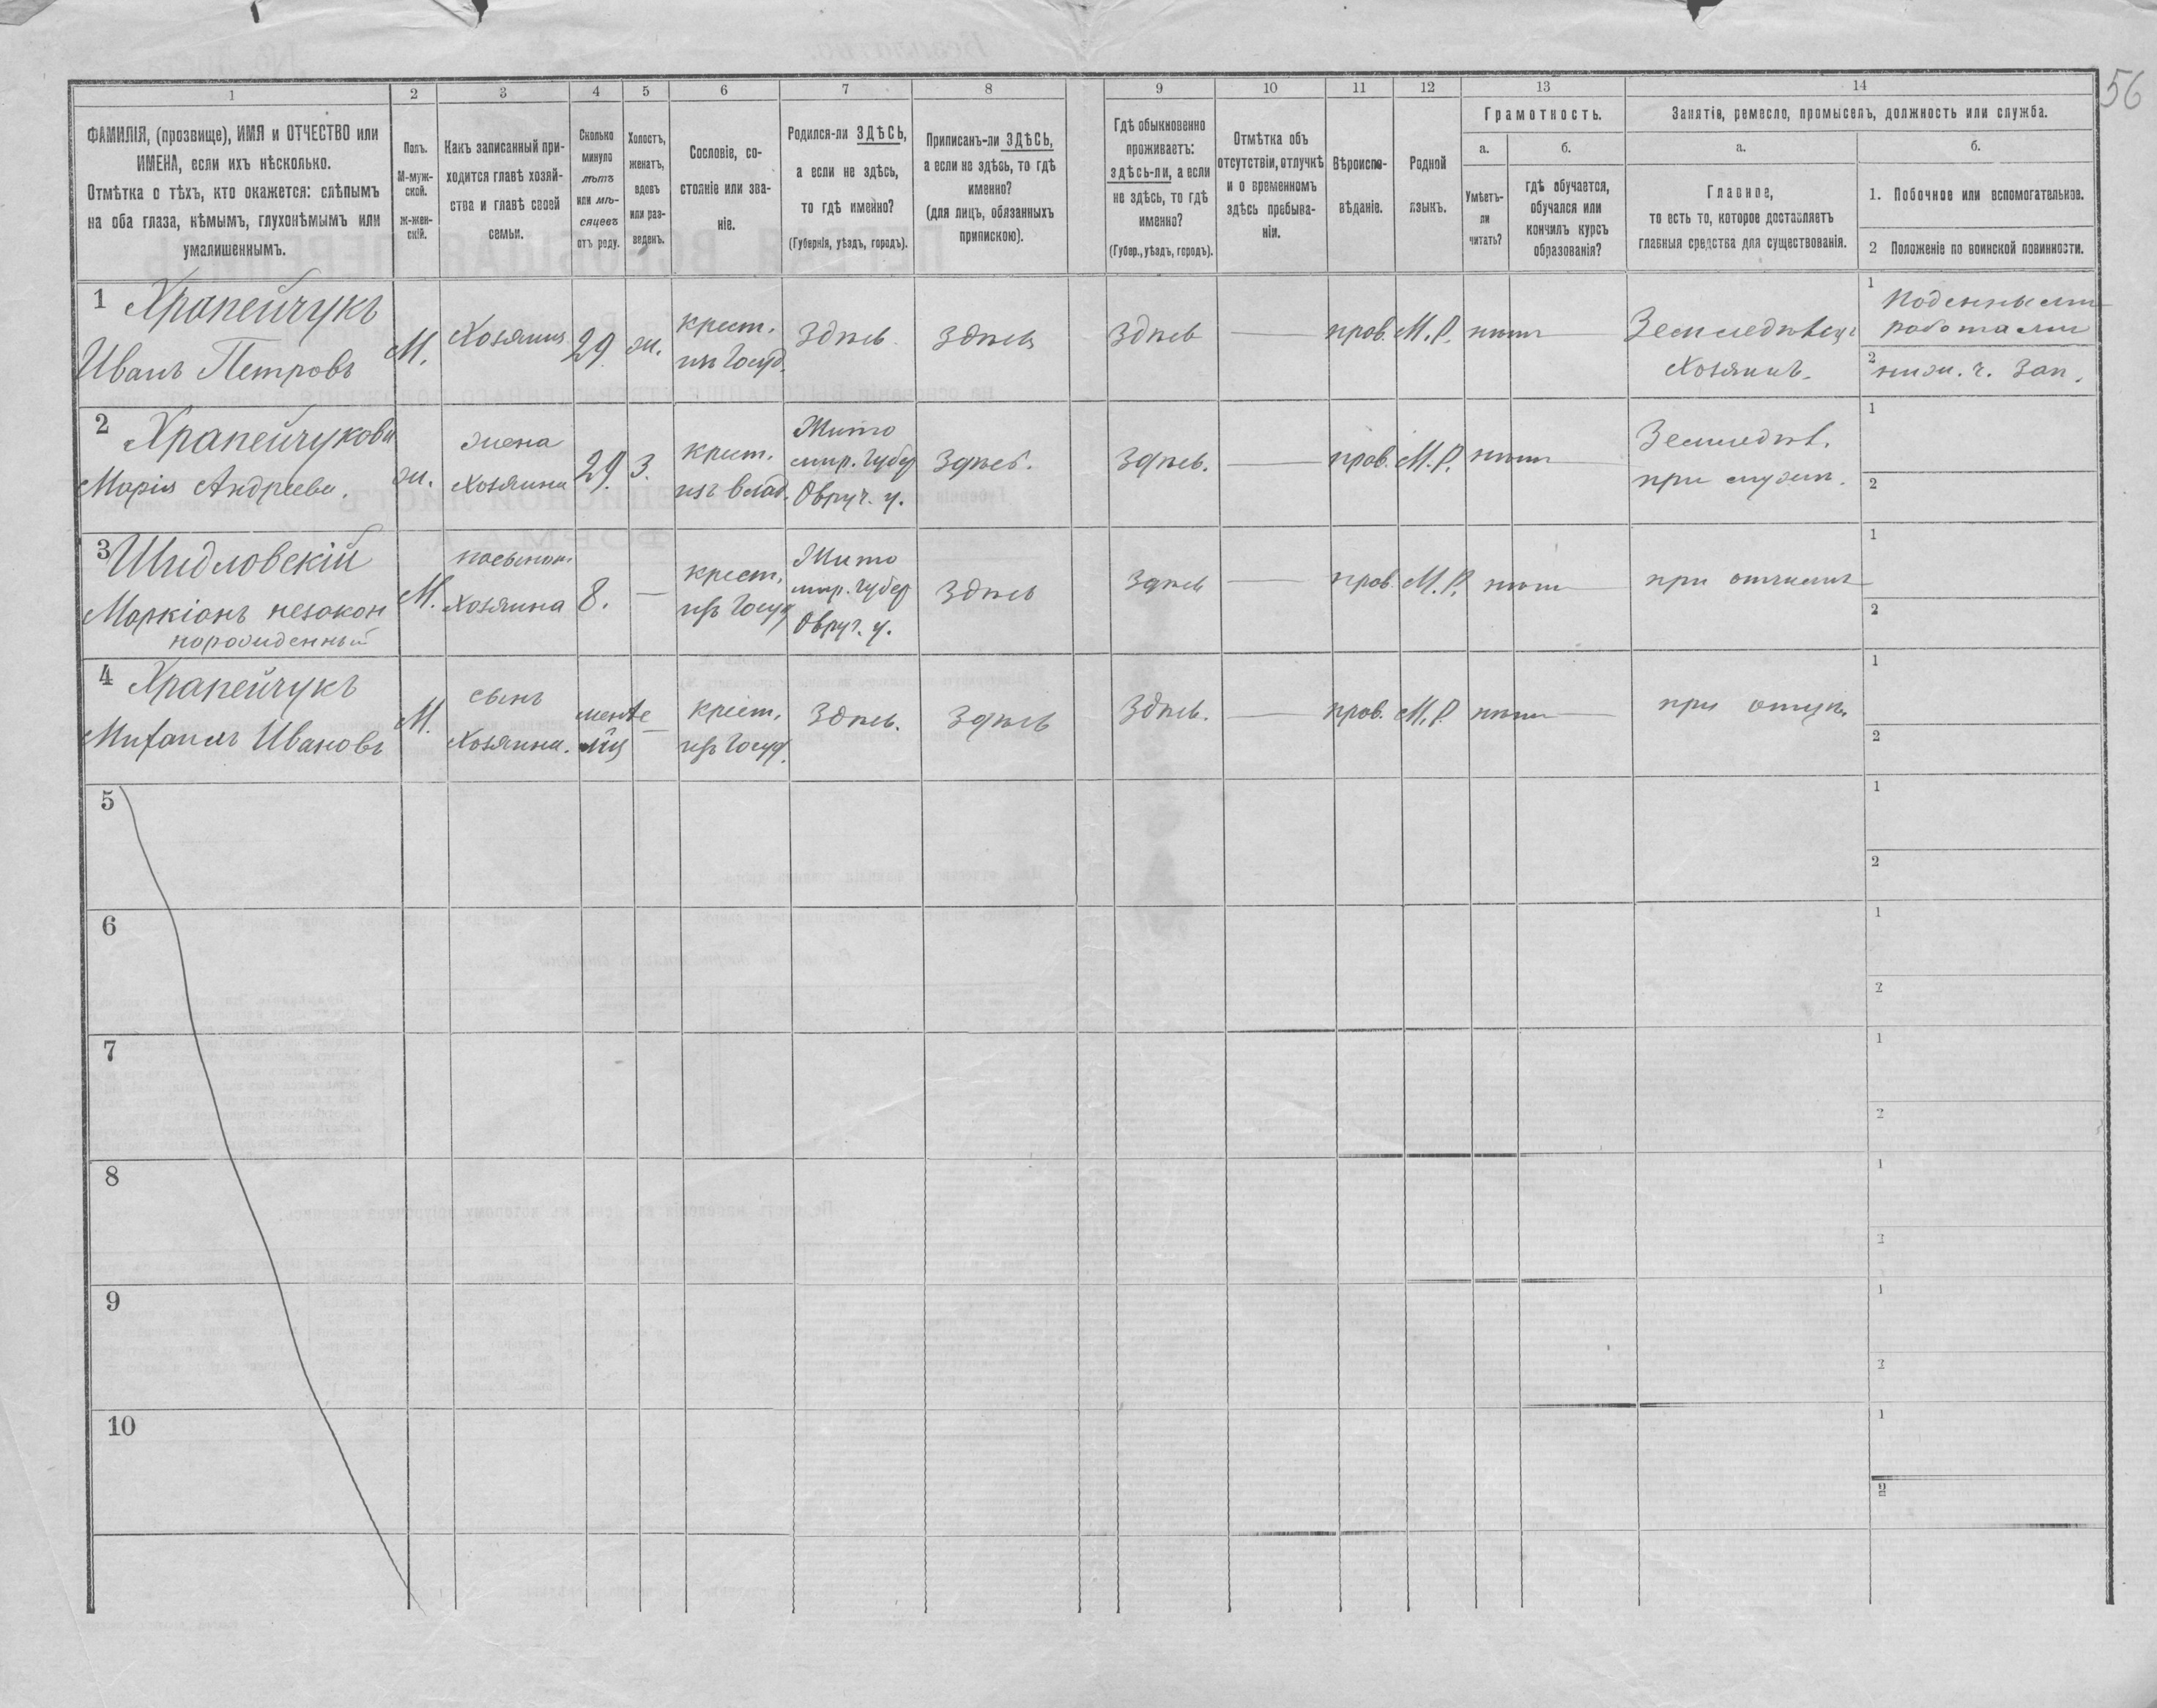 56
1
2
3
4
5
6
7
8
9
10
11
12
13
14
ФАМИЛІЯ, (прозвище), ИМЯ и ОТЧЕСТВО или
ИМЕНА, если ихъ нѣсколько.
Отмѣтка о тѣхъ, кто окажется: слѣпымъ
на оба глаза, нѣмымъ, глухонѣмымъ или
умалишеннымъ.
Полъ.
М-муж-
ской.
Ж-жен-
скій.
Какъ записанный при-
ходится главѣ хозяй-
ства и главѣ своей
семьи.
Сколько
минуло
лѣтъ
или мѣ-
сяцевъ
отъ роду.
Холостъ,
женатъ,
вдовъ
или раз-
веденъ.
Сословіе, со-
стояніе или зва-
ніе.
Родился-ли ЗДѢСЬ,
а если не здѣсь,
то гдѣ именно?
(Губернія, уѣздъ, городъ).
Приписанъ-ли ЗДѢСЬ,
а если не здѣсь, то гдѣ
именно?
(для лицъ, обязанныхъ
припискою).
Гдѣ обыкновенно
проживаетъ:
здѣсь-ли, а если
не здѣсь, то гдѣ
именно?
(Губер., уѣздъ, городъ).
Отмѣтка объ
отсутствіи, отлучкѣ
и о временномъ
здѣсь пребыва-
ніи.
Вѣроиспо-
вѣданіе.
Родной
языкъ.
Грамотность.
а.
Умѣетъ-
ли
читать?
б.
гдѣ обучается,
обучался или
кончилъ курсъ
образованія?
Занятіе, ремесло, промыселъ, должность или служба.
а.
Главное,
то есть то, которое доставляетъ
главныя средства для существованія.
б.
1. Побочное или вспомогательное.
2 Положеніе по воинской повинности.
1 Храпейчукъ
Иванъ Петровъ
М.
Хозяинъ
29
ж.
крест.
изъ Госуд.
Здѣсь
Здѣсь
Здѣсь
—
прав.
М.Р.
нѣтъ —
Земледѣлецъ
Хозяинъ.
1 Поденными
работами
2 ниж. ч. зап.
2 Храпейчукова
Марія Андреева.
ж.
жена
Хозяина
29.
З.
крест.
изъ влад.
Жито
мир. губер
Овруч. у.
Здѣсь.
Здѣсь.
—
прав.
М.Р.
нѣтъ —
Земледѣл.
при мужѣ.
1
2
3 Шидловскій
Маркіанъ незакон
норожденный
М.
пасынок.
Хозяина
8.
—
крест.
изъ Госуд
Жито
мир. губер
Овруч. у.
Здѣсь
Здѣсь
—
прав
М.Р.
нѣтъ —
при отчимѣ
1
2
4 Храпейчукъ
Михаилъ Ивановъ
М.
сынъ
Хозяина.
менѣе
м-ца
—
крест.
изъ Госуд.
Здѣсь.
Здѣсь
Здѣсь.
—
прав.
М.Р.
нѣтъ —
при отцѣ.
1
2
5
1
2
6
1
2
7
1
2
8
1
2
9
1
2
10
1
2